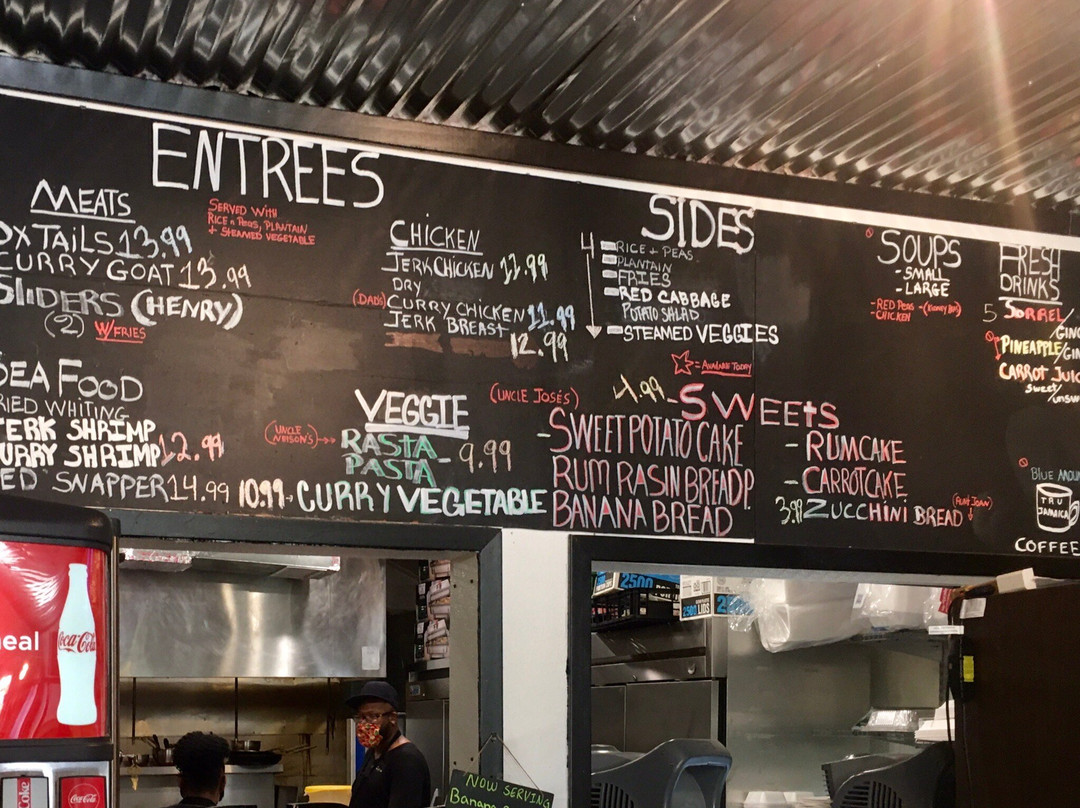 ENTREES
MEATS
OX TAILS 13.99
CURRY GOAT 13.99
SLIDERS (HENRY)
(2) W/FRIES
SERVED WITH
RICE & PEAS, PLANTAIN
+ STEAMED VEGETABLE
CHICKEN
JERK CHICKEN
DRY
(DAD'S) CURRY CHICKEN 11.99
JERK BREAST
12.99
SEA FOOD
FRIED WHITING
JERK SHRIMP
CURRY SHRIMP 12.99
RED SNAPPER 14.99
VEGGIE
RASTA
PASTA - 9.99
10.99 - CURRY VEGETABLE
SIDES
4
RICE + PEAS
PLANTAIN
FRIES
RED CABBAGE
POTATO SALAD
STEAMED VEGGIES
= AVAILABLE TODAY
4.99 - SWEETS
(UNCLE JOSE'S)
- SWEET POTATO CAKE
RUM RASIN BREADP.
BANANA BREAD
- RUMCAKE
- CARROTCAKE
3.99 ZUCCHINI BREAD
SOUPS
- SMALL
- LARGE
- RED PEAS - (KIDNEY BEANS)
- CHICKEN
FRESH
DRINKS
5 SORREL/
PINEAPPLE/
CARROT JUIC
SWEET/
BLUE MOUN
TRU
JAMAICA
COFFEE
eal
Coca-Cola
Coke
Coca-Cola
2500
2500
LIDS
NOW SERVING
Banana